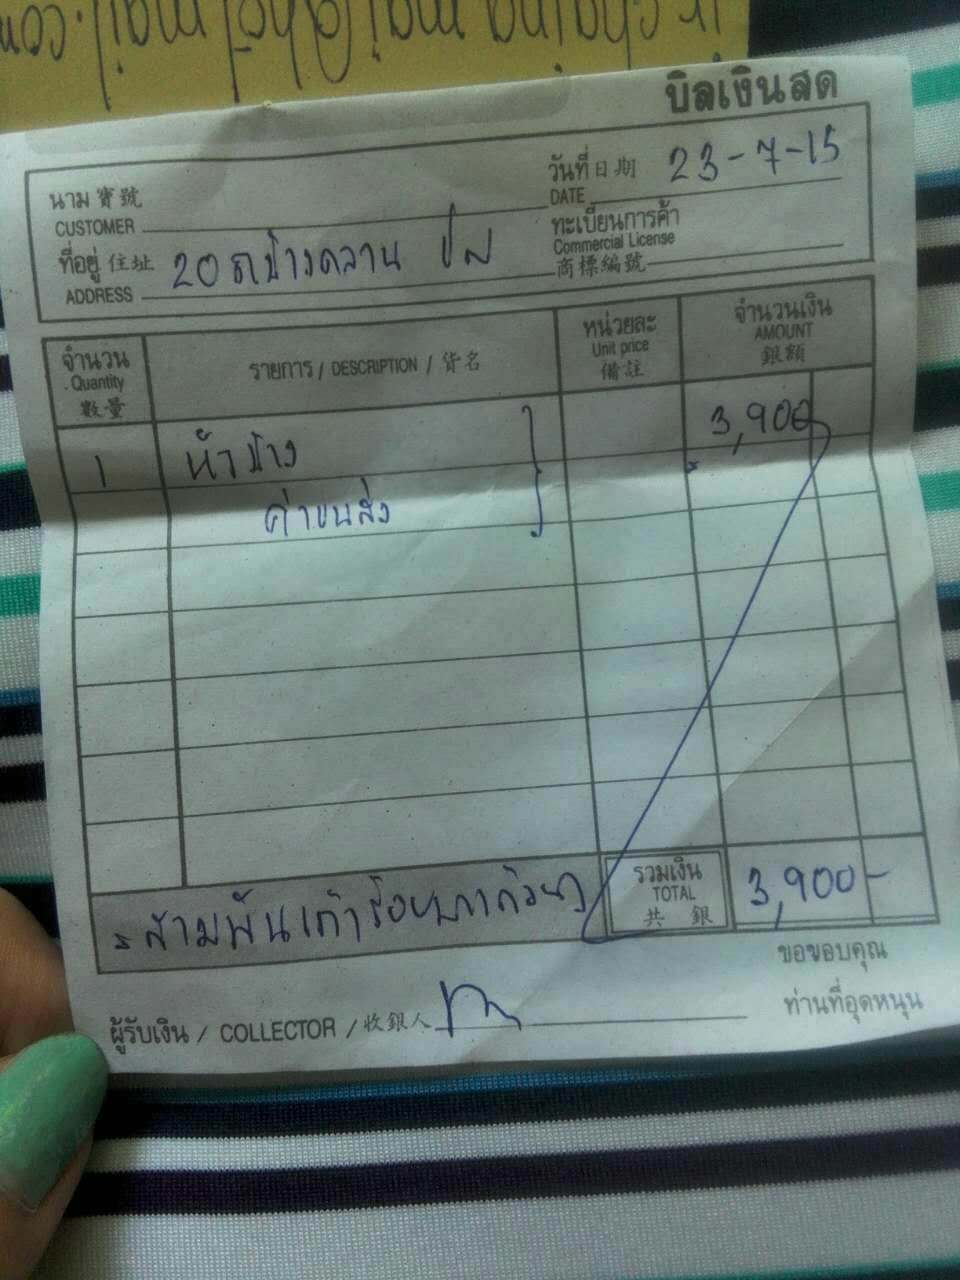 บิลเงินสด
นาม 寶號
CUSTOMER
วันที่ 日期 23-7-15
DATE
ที่อยู่ 住址 20 ถ.ช้างคลาน
ADDRESS
ทะเบียนการค้า
Commercial License
商標編號
จำนวน รายการ / DESCRIPTION / 貨名 หน่วยละ จำนวนเงิน
Quantity Unit price AMOUNT
數量 備註 銀額
1 ช้าง 3,900
ค่าขนส่ง
สามพันเก้าร้อยบาทถ้วน รวมเงิน 3,900-
TOTAL
共 銀
ขอขอบคุณ
ท่านที่อุดหนุน
ผู้รับเงิน / COLLECTOR / 收銀人